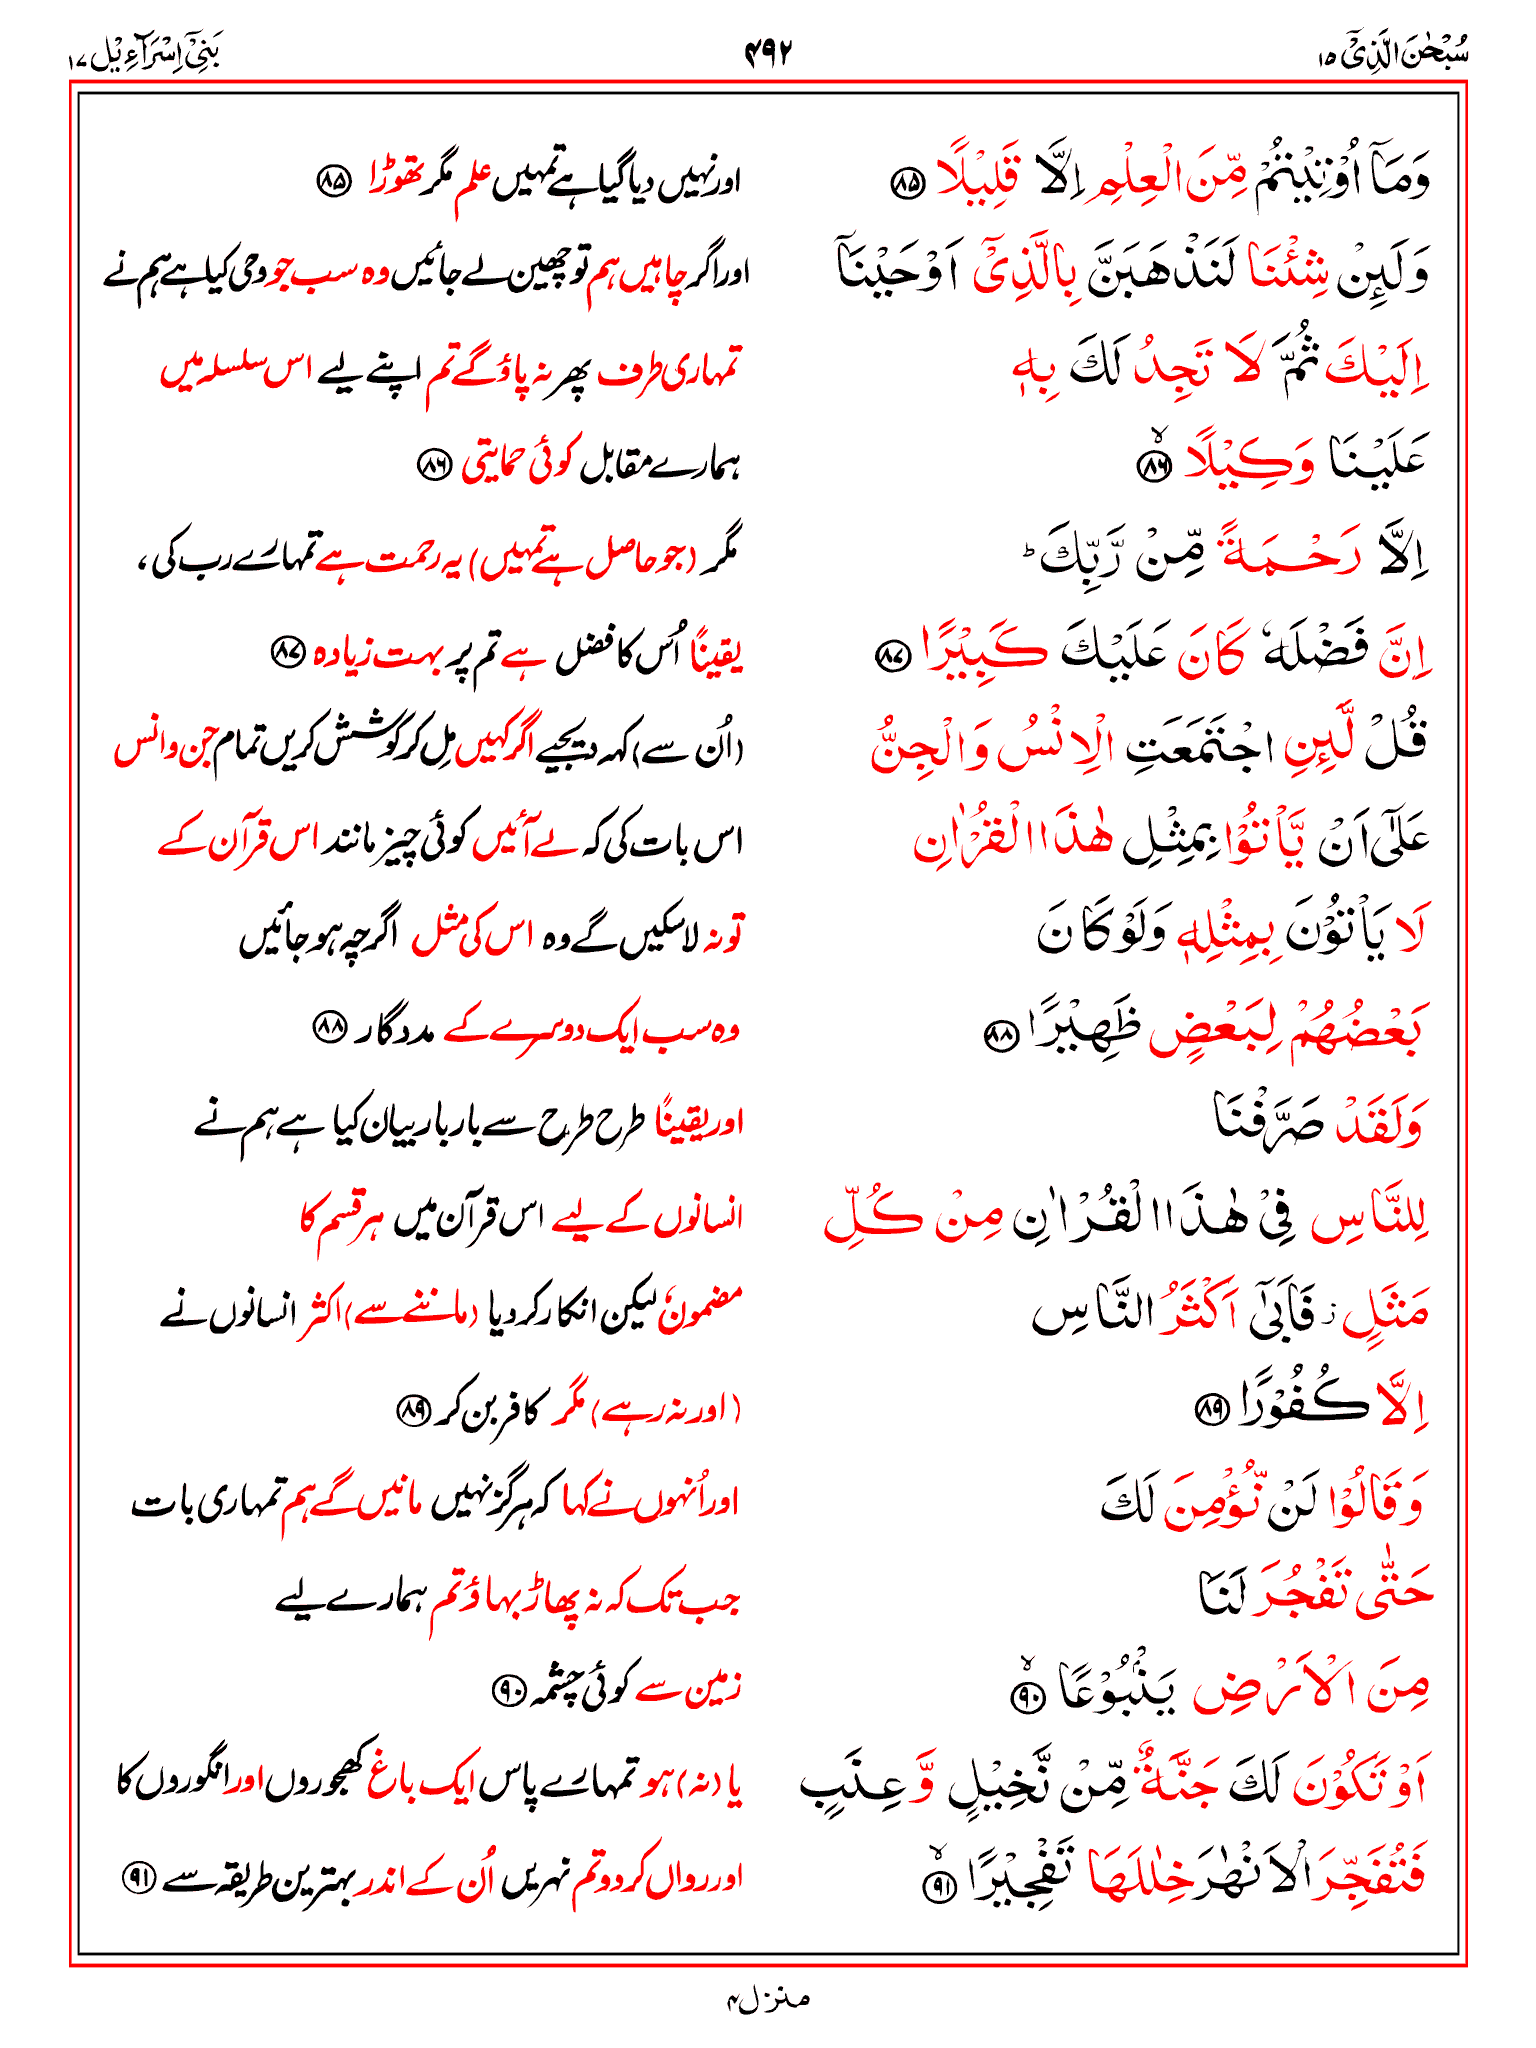 سُبْحٰنَ الَّذِیْۤ ۱۵ ۴۹۲ بَنِیْۤ اِسْرَآءِیْل ۱۷
وَمَاۤ اُوْتِیْتُمْ مِّنَ الْعِلْمِ اِلَّا قَلِیْلًا ﴿۸۵﴾ اور نہیں دیا گیا ہے تمہیں علم مگر تھوڑا ﴿۸۵﴾
وَلَىِٕنْ شِئْنَا لَنَذْهَبَنَّ بِالَّذِیْۤ اَوْحَیْنَاۤ اور اگر چاہیں ہم تو چھین لے جائیں وہ سب جو وحی کیا ہے ہم نے
اِلَیْكَ ثُمَّ لَا تَجِدُ لَكَ بِهٖ تمہاری طرف پھر نہ پاؤ گے تم اپنے لیے اس سلسلہ میں
عَلَیْنَا وَكِیْلًا ﴿۸۶﴾ۙ ہمارے مقابل کوئی حمایتی ﴿۸۶﴾
اِلَّا رَحْمَةً مِّنْ رَّبِّكَ ؕ مگر (جو حاصل ہے تمہیں) یہ رحمت ہے تمہارے رب کی،
اِنَّ فَضْلَهٗ كَانَ عَلَیْكَ كَبِیْرًا ﴿۸۷﴾ یقیناً اُس کا فضل ہے تم پر بہت زیادہ ﴿۸۷﴾
قُلْ لَّىِٕنِ اجْتَمَعَتِ الْاِنْسُ وَالْجِنُّ (اُن سے) کہہ دیجیے اگر کہیں مِل کر کوشش کریں تمام جن و انس
عَلٰۤى اَنْ یَّاْتُوْا بِمِثْلِ هٰذَا الْقُرْاٰنِ اس بات کی کہ لے آئیں کوئی چیز مانند اس قرآن کے
لَا یَاْتُوْنَ بِمِثْلِهٖ وَلَوْ كَانَ تو نہ لا سکیں گے وہ اس کی مثل اگرچہ ہو جائیں
بَعْضُهُمْ لِبَعْضٍ ظَهِیْرًا ﴿۸۸﴾ وہ سب ایک دوسرے کے مددگار ﴿۸۸﴾
وَلَقَدْ صَرَّفْنَا اور یقیناً طرح طرح سے بار بار بیان کیا ہے ہم نے
لِلنَّاسِ فِیْ هٰذَا الْقُرْاٰنِ مِنْ كُلِّ انسانوں کے لیے اس قرآن میں ہر قسم کا
مَثَلٍ ؗ فَاَبٰۤى اَكْثَرُ النَّاسِ مضمون، لیکن انکار کر دیا (ماننے سے) اکثر انسانوں نے
اِلَّا كُفُوْرًا ﴿۸۹﴾ (اور نہ رہے) مگر کافر بن کر ﴿۸۹﴾
وَقَالُوْا لَنْ نُّؤْمِنَ لَكَ اور اُنہوں نے کہا کہ ہرگز نہیں مانیں گے ہم تمہاری بات
حَتّٰى تَفْجُرَ لَنَا جب تک کہ نہ پھاڑ بہاؤ تم ہمارے لیے
مِنَ الْاَرْضِ یَنْۢبُوْعًا ﴿۹۰﴾ۙ زمین سے کوئی چشمہ ﴿۹۰﴾
اَوْ تَكُوْنَ لَكَ جَنَّةٌ مِّنْ نَّخِیْلٍ وَّعِنَبٍ یا (نہ) ہو تمہارے پاس ایک باغ کھجوروں اور انگوروں کا
فَتُفَجِّرَ الْاَنْهٰرَ خِلٰلَهَا تَفْجِیْرًا ﴿۹۱﴾ۙ اور رواں کر دو تم نہریں اُن کے اندر بہترین طریقہ سے ﴿۹۱﴾
منزل ۴